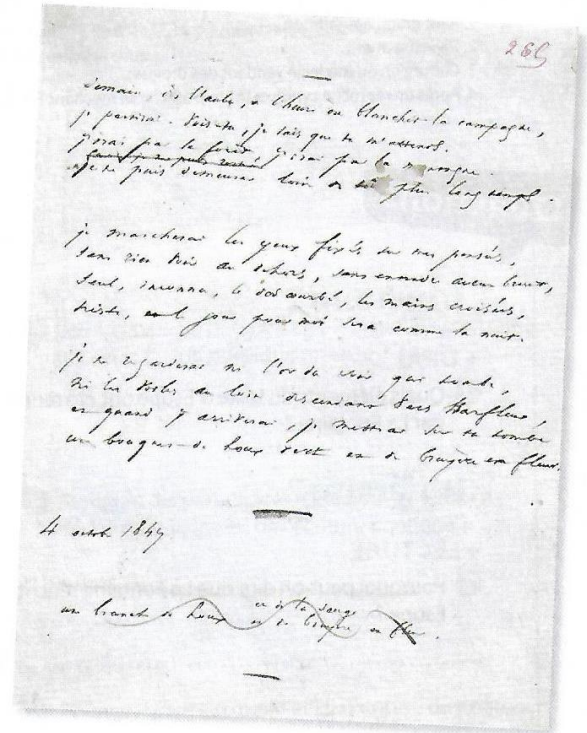 265
demain dès l'aube, à l'heure où blanchit la campagne,
je partirai. Vois-tu, je sais que tu m'attends.
j'irai par la forêt, j'irai par la montagne.
je ne puis demeurer loin de toi plus longtemps.
je marcherai les yeux fixés sur mes pensées,
sans rien voir au dehors, sans entendre aucun bruit,
seul, inconnu, le dos courbé, les mains croisées,
triste, et le jour pour moi sera comme la nuit.
je ne regarderai ni l'or du soir qui tombe,
ni les voiles au loin descendant vers Harfleur,
et quand j'arriverai, je mettrai sur ta tombe
un bouquet de houx vert et de bruyère en fleur.
4 octobre 1847
et de la sauge
un branche de houx et de bruyère en fleur.